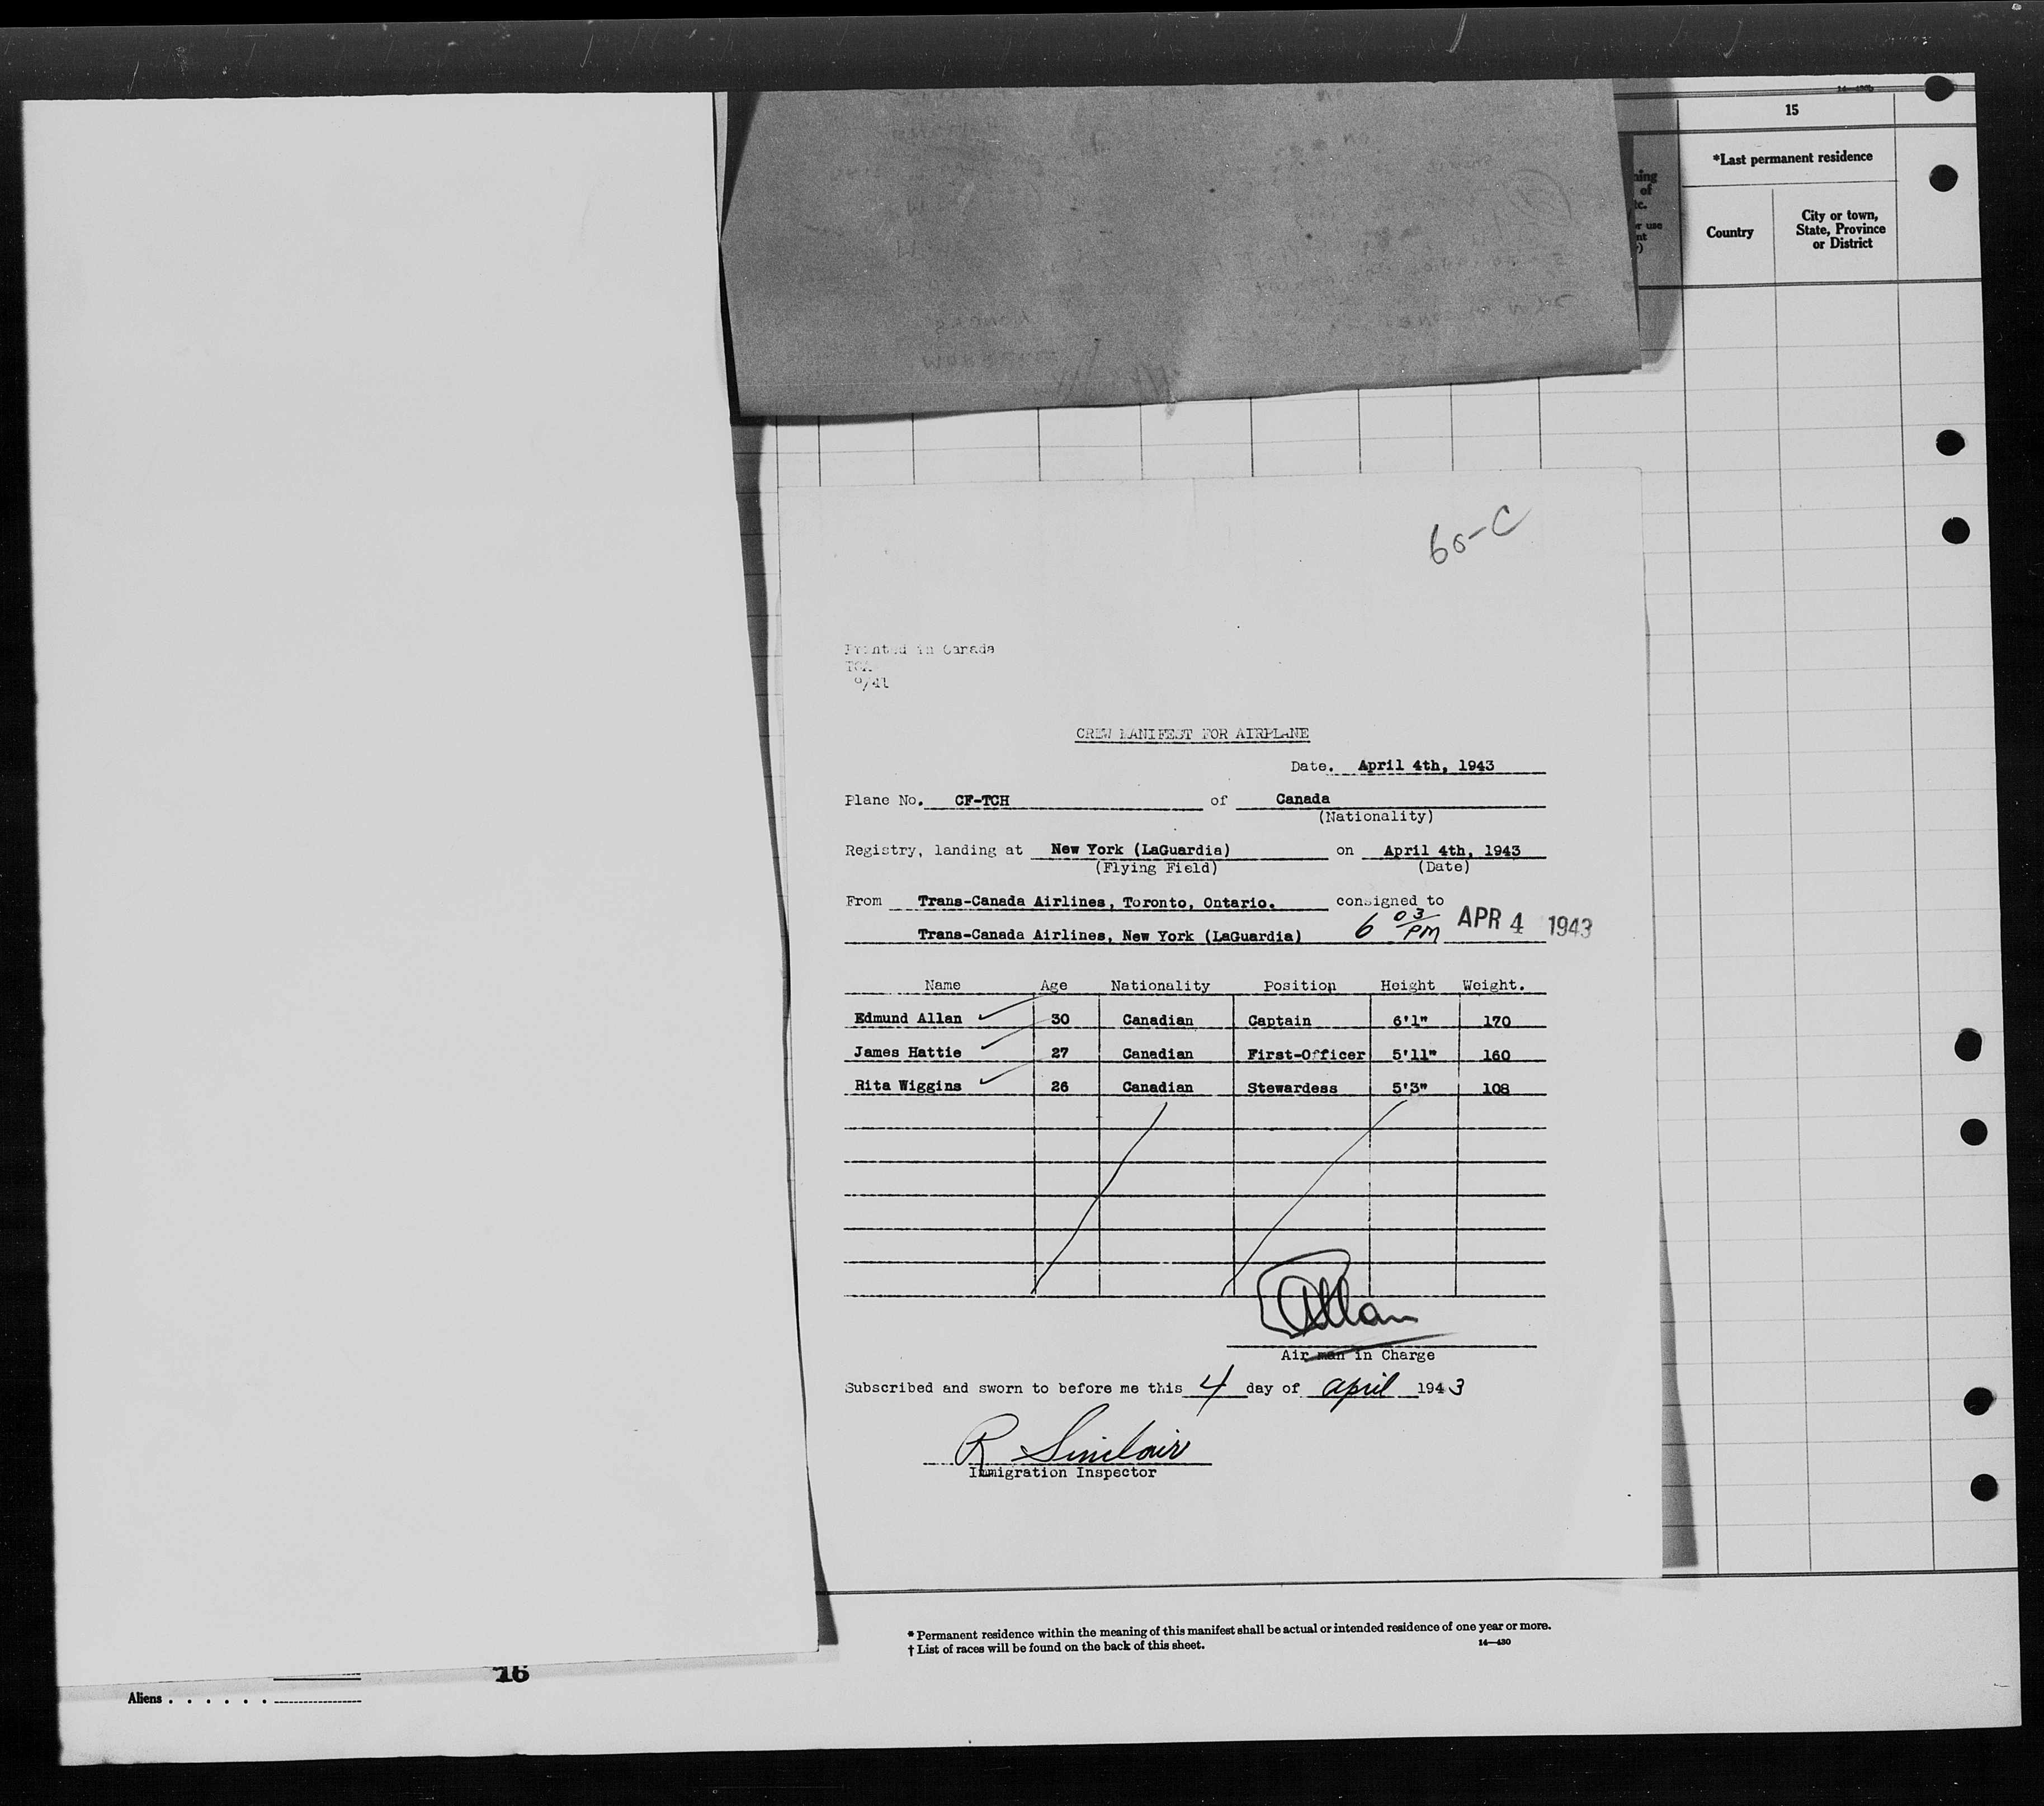 15
*Last permanent residence
Country
City or town,
State, Province
or District
60-C
Printed in Canada
TCA
9/41
CREW MANIFEST FOR AIRPLANE
Date. April 4th, 1943
Plane No. CF-TCH of Canada
(Nationality)
Registry, landing at New York (LaGuardia) on April 4th, 1943
(Flying Field) (Date)
From Trans-Canada Airlines, Toronto, Ontario. consigned to
Trans-Canada Airlines, New York (LaGuardia) 6 03 PM APR 4 1943
Name Age Nationality Position Height Weight.
Edmund Allan 30 Canadian Captain 6'1" 170
James Hattie 27 Canadian First-Officer 5'11" 160
Rita Wiggins 26 Canadian Stewardess 5'3" 108
Allan
Air man in Charge
Subscribed and sworn to before me this 4 day of april 1943
R Sinclair
Immigration Inspector
* Permanent residence within the meaning of this manifest shall be actual or intended residence of one year or more.
† List of races will be found on the back of this sheet. 14—430
16
Aliens . . . . . .